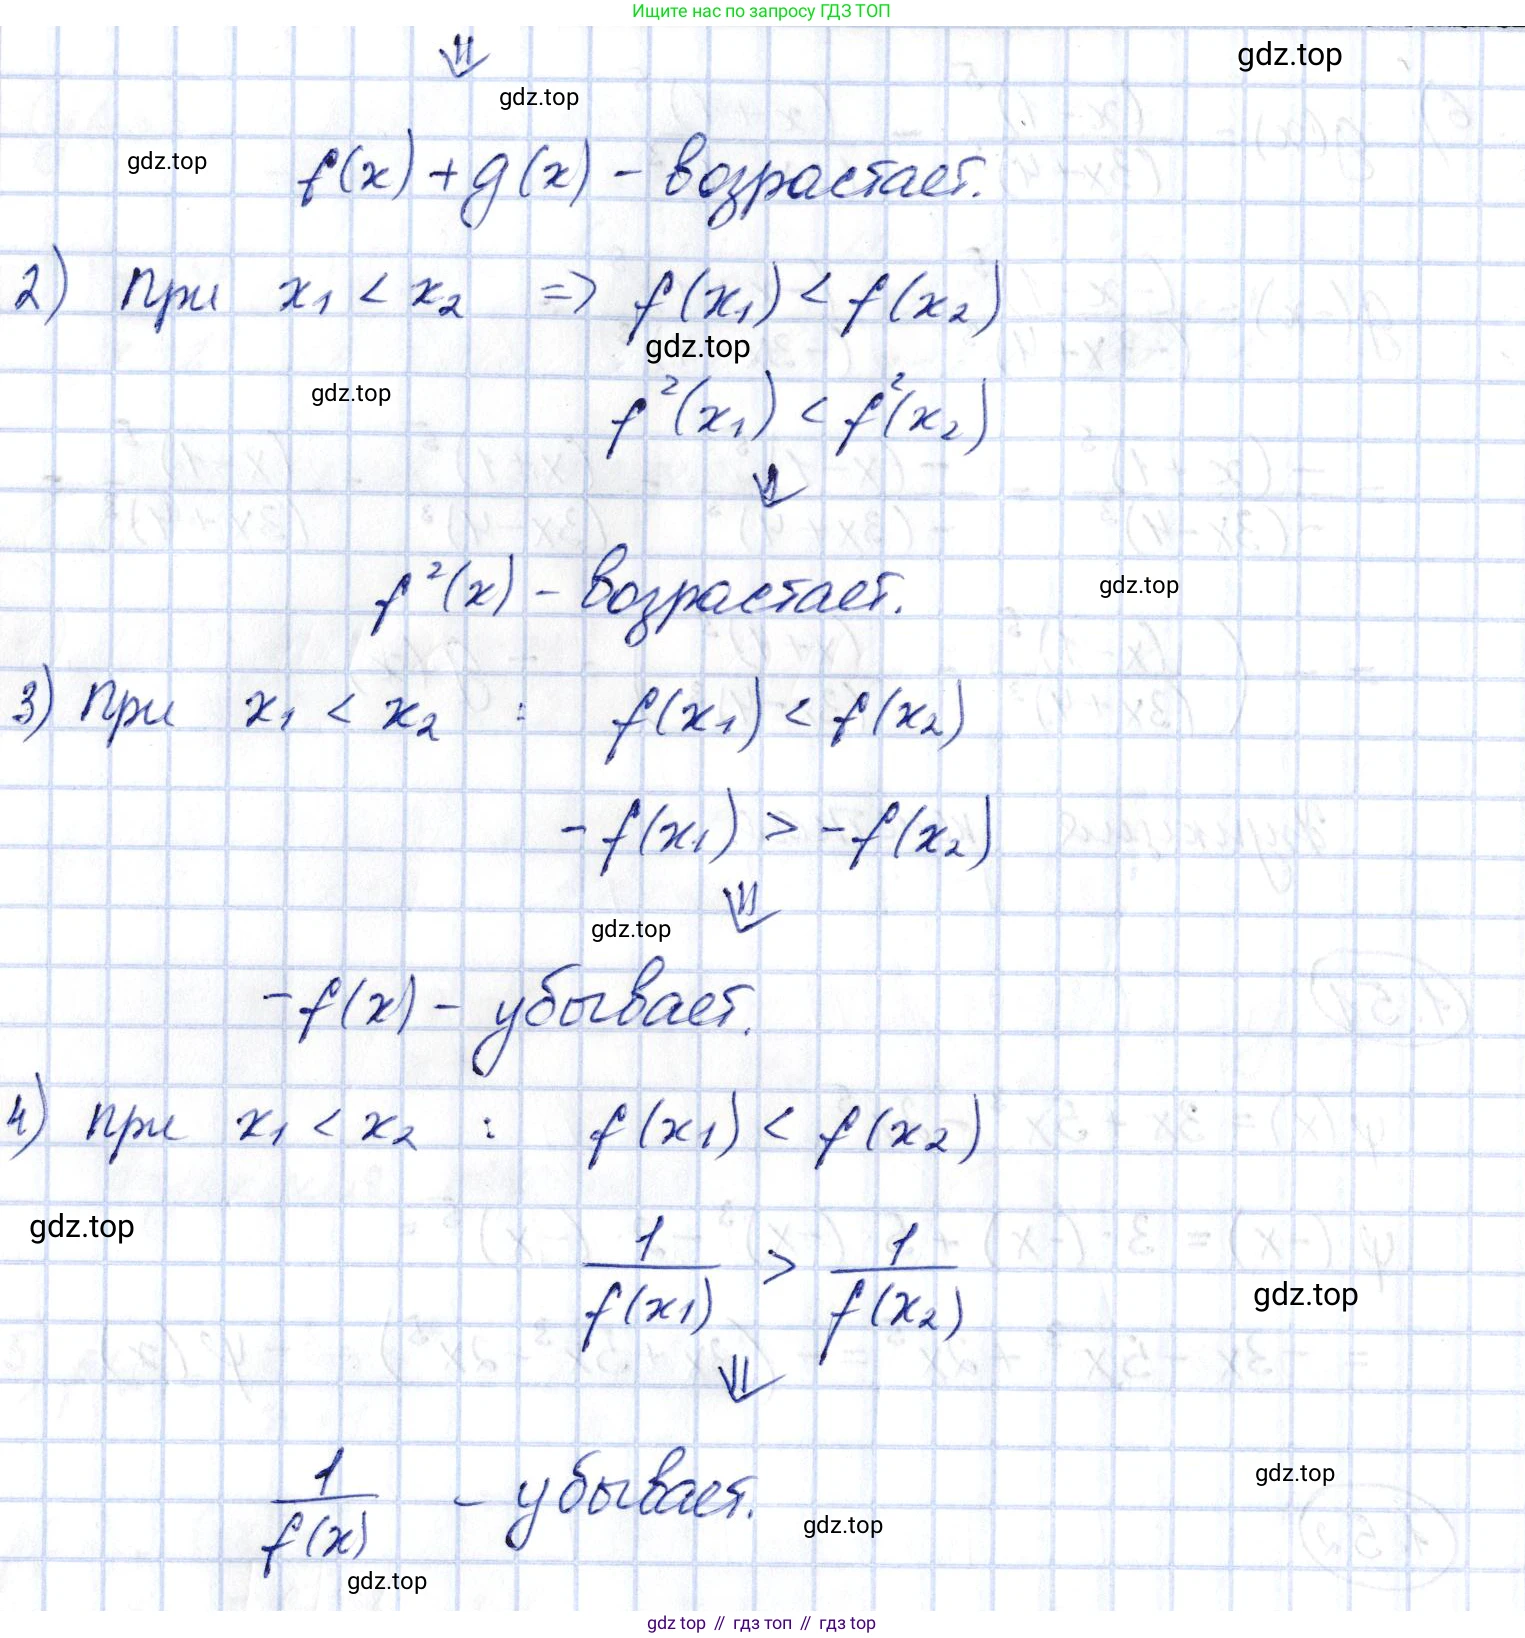 Ищите нас по запросу ГДЗ ТОП
⇓
gdz.top
gdz.top
gdz.top
f(x) + g(x) - возрастает.
2) при x₁ < x₂ => f(x₁) < f(x₂)
gdz.top
gdz.top
f²(x₁) < f²(x₂)
⇓
f²(x) - возрастает.
gdz.top
3) при x₁ < x₂ : f(x₁) < f(x₂)
-f(x₁) > -f(x₂)
⇓
gdz.top
-f(x) - убывает.
4) при x₁ < x₂ : f(x₁) < f(x₂)
gdz.top
1/f(x₁) > 1/f(x₂)
gdz.top
⇓
1/f(x) - убывает.
gdz.top
gdz.top
gdz.top
gdz top // гдз топ // гдз top